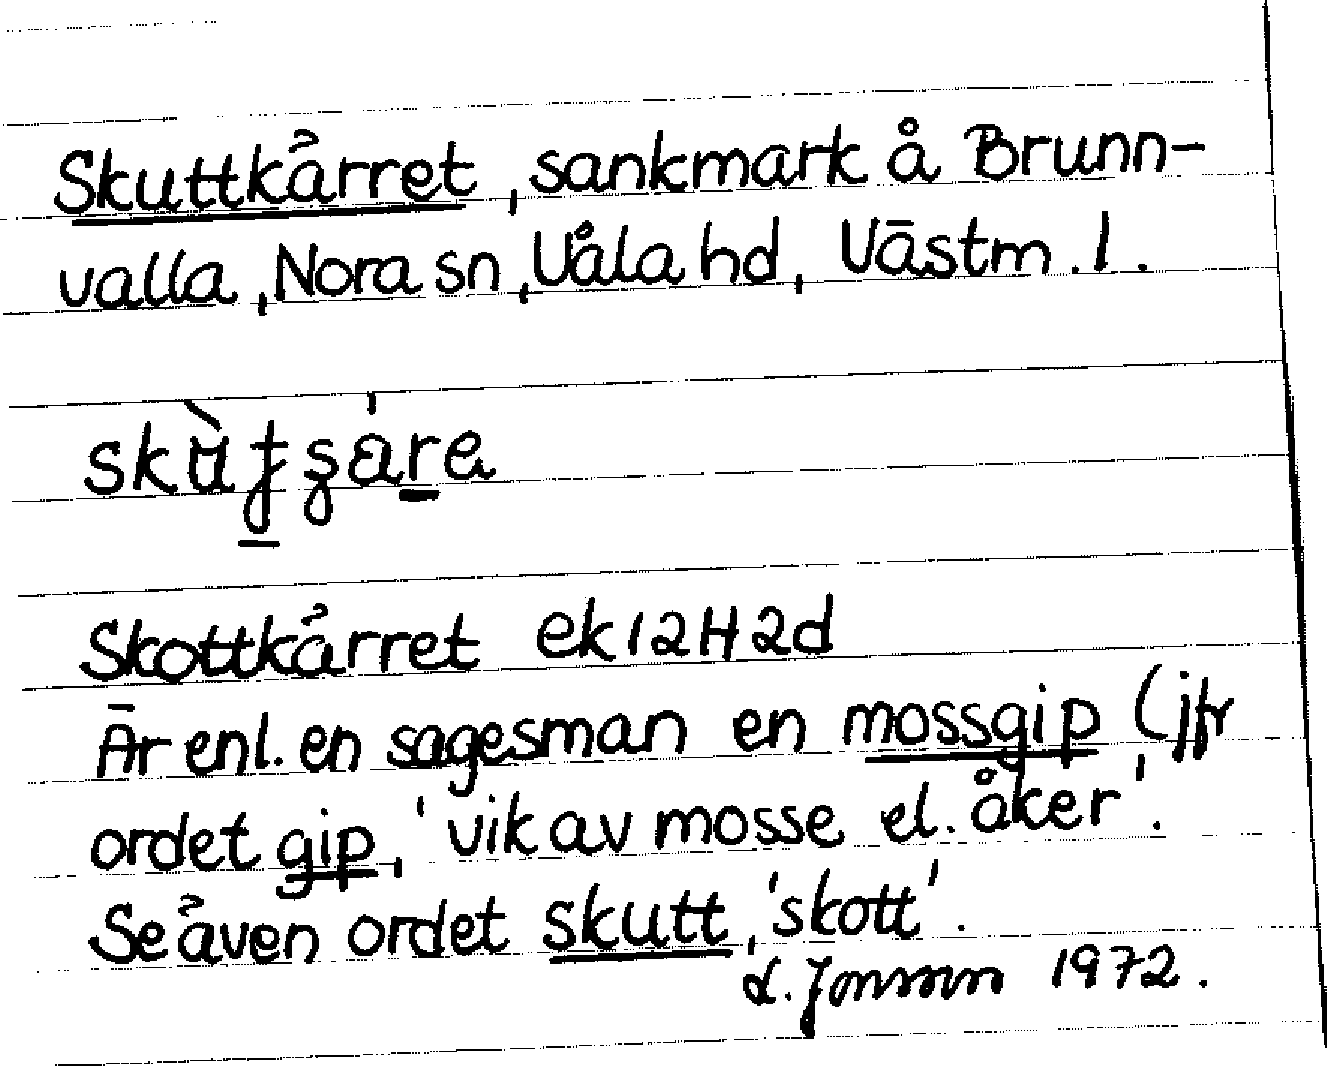 Skuttkärret, sankmark å Brunn-
valla, Nora sn, Våla hd, Västm. l.
Skottkärret ek 12H2d
Är enl. en sagesman en mossgip (jfr
ordet gip, 'vik av mosse el. åker'.
Se även ordet skutt, 'skott'.
L. Jonsson 1972.